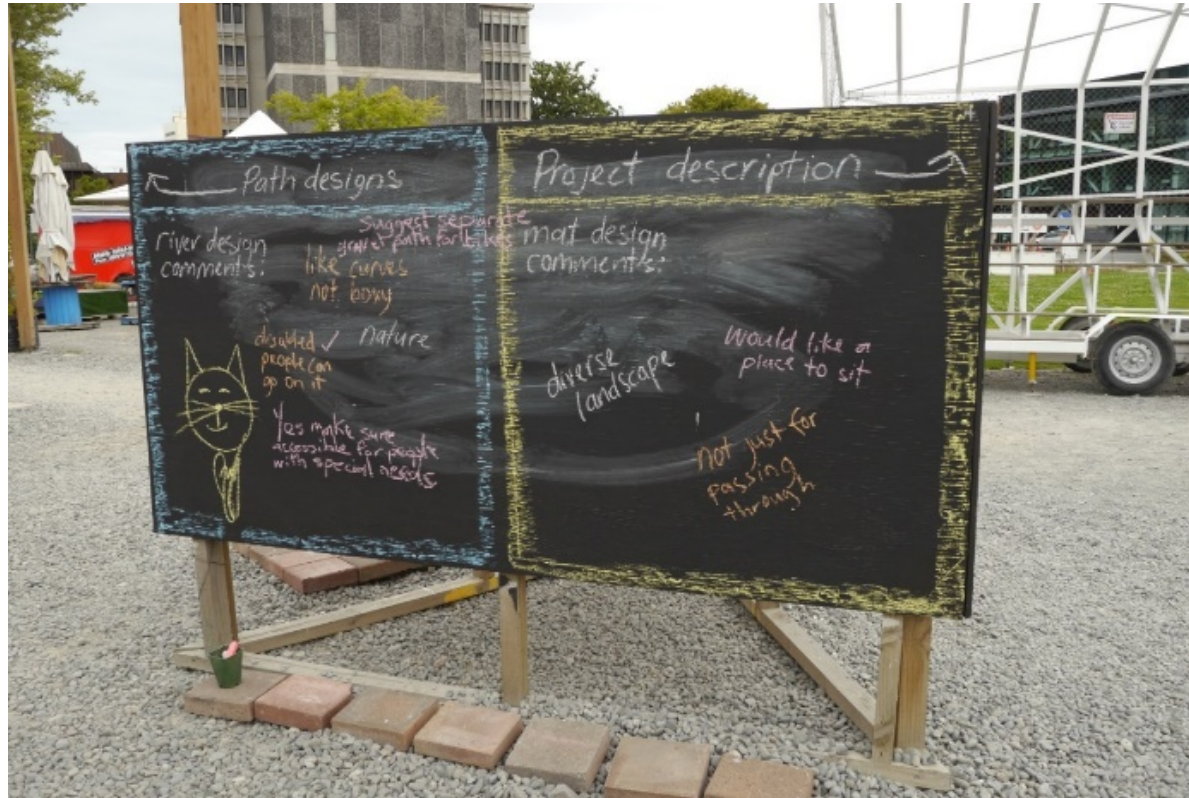 Path designs
river design
comments:
suggest separate
gravel path for bikes
like curves
not boxy
disabled ✓
people can
go on it
nature
Yes make sure
accessible for people
with special needs
Project description
mat design
comments:
diverse
landscape
Would like a
place to sit
not just for
passing
through